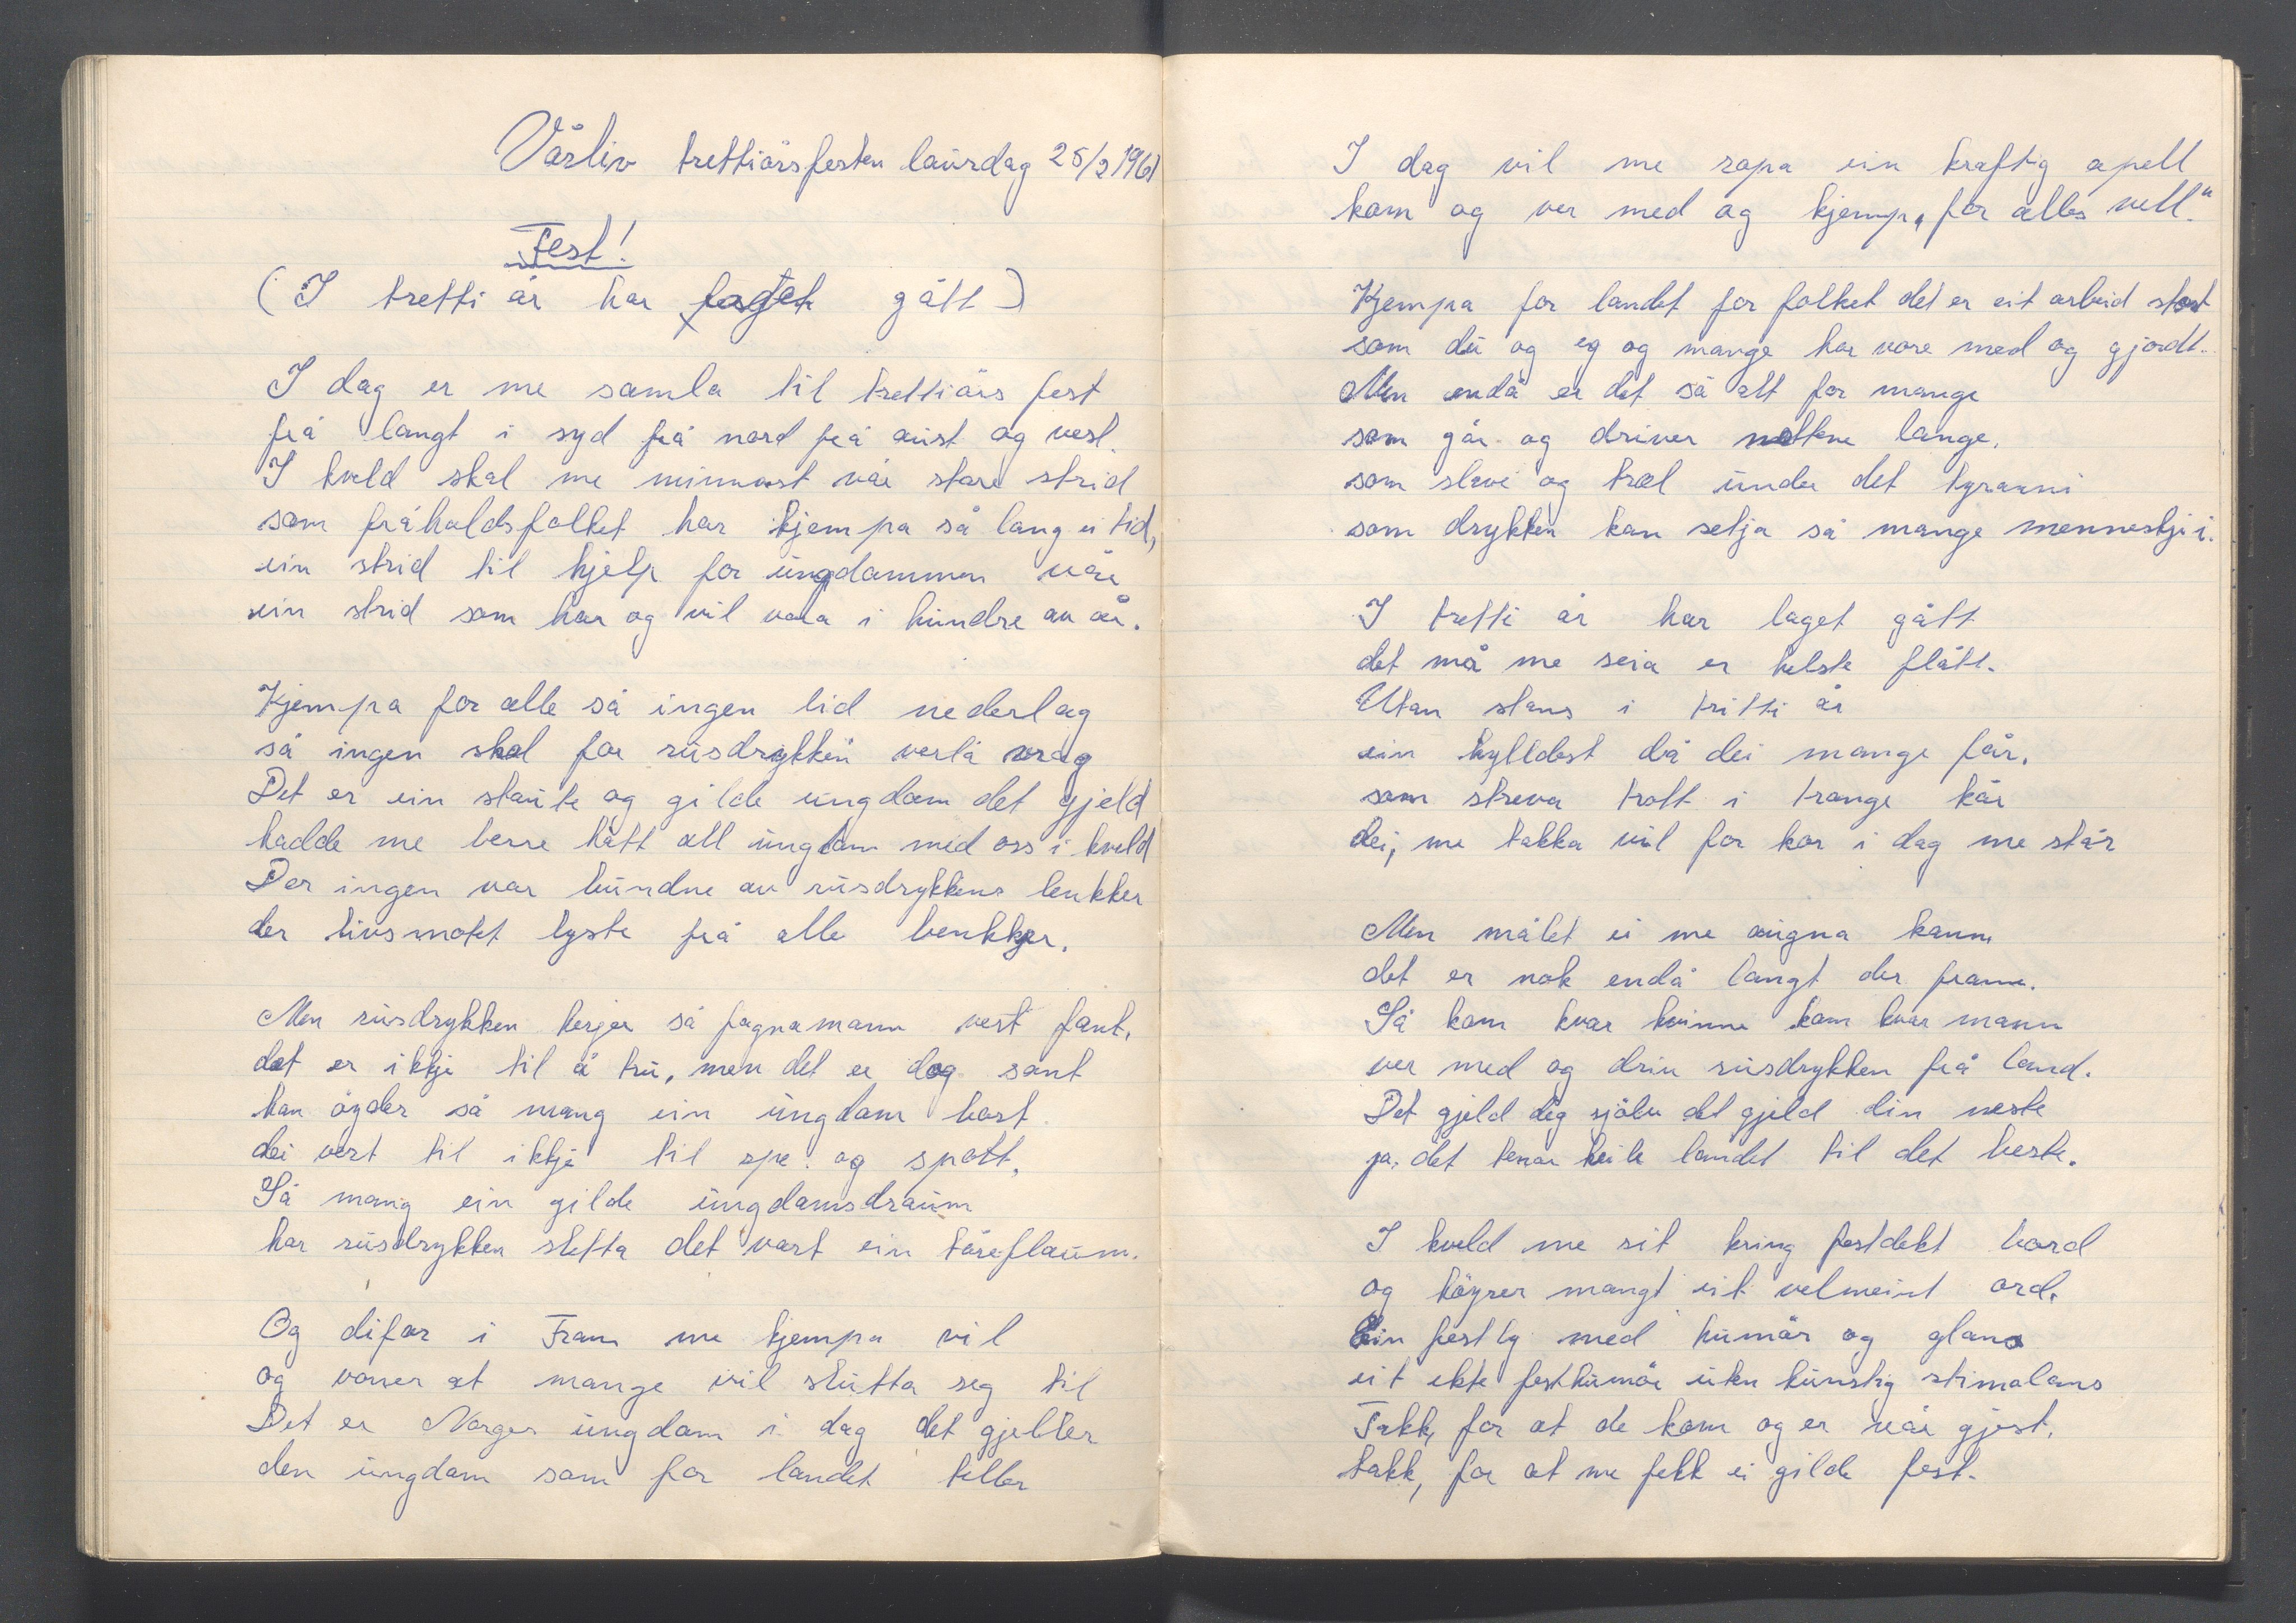 Vårliv trettiårsfesten laurdag 25/2 1961
Fest!
(I tretti år har laget gått)
I dag er me samla til trettiårs fest
frå langt i syd frå nord frå aust og vest.
I kveld skal me minnast vår store strid
som fråholdsfolket har kjempa så lang ei tid,
ein strid til hjelp for ungdommen vår
ein strid som har og vil vara i hundre av år.
Kjempa for alle så ingen lid nederlag
så ingen skal for rusdrykken verta vrag
Det er ein staute og gilde ungdom det gjeld
hadde me berre hatt all ungdom med oss i kveld
Der ingen var bundne av rusdrykkens lenkker
der livsmotet lyste frå alle benkker.
Men rusdrykken herjer så fagnamann vert fant,
det er ikkje til å tru, men det er dog sant
han öyder så mang ein ungdom bort
dei vert til ikkje til spe og spott,
Så mang ein gilde ungdomsdraum
har rusdrykken sletta det vart ein tåreflaum.
Og difor i Fram me kjempa vil
og voner at mange vil slutta seg til
Det er Norges ungdom i dag det gjelder
den ungdom som for landet teller
I dag vil me ropa ein kraftig apell
kom og ver med og kjemp „for alles vell."
Kjempa for landet for folket det er eit arbeid stort
som du og eg og mange har vore med og gjordt.
Men endå er det så alt for mange
som går og driver nettene lange,
som slave og træl under det tyranni
som drykken kan setja så mange menneskje i.
I tretti år har laget gått
det må me seia er helste flått.
Utan stans i tritti år
ein hylldest då dei mange får,
som streva trott i trange kår
dei, me takka vil for kor i dag me står
Men målet ei me augna kann
det er nok endå langt der fram.
Så kom kvar kvinne kom kvar mann
ver med og driv rusdrykken frå land.
Det gjeld deg sjölv det gjeld din neste
ja, det tenar heile landet til det beste.
I kveld me sit kring festdekt bord
og höyrer mangt eit velmeint ord.
Ein festly med humör og glans
eit ekte festhumör uten kunstig stimalans
Takk, for at de kom og er vår gjest,
takk, for at me fekk ei gilde fest.